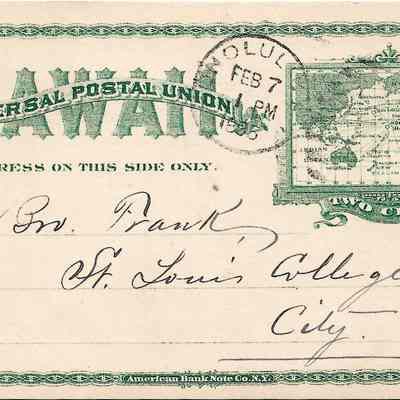 AWAII
ERSAL POSTAL UNION
NOLUL
FEB 7
1 PM
RESS ON THIS SIDE ONLY.
TWO CE
Bro. Frank,
St. Louis College
City.
American Bank Note Co. N.Y.